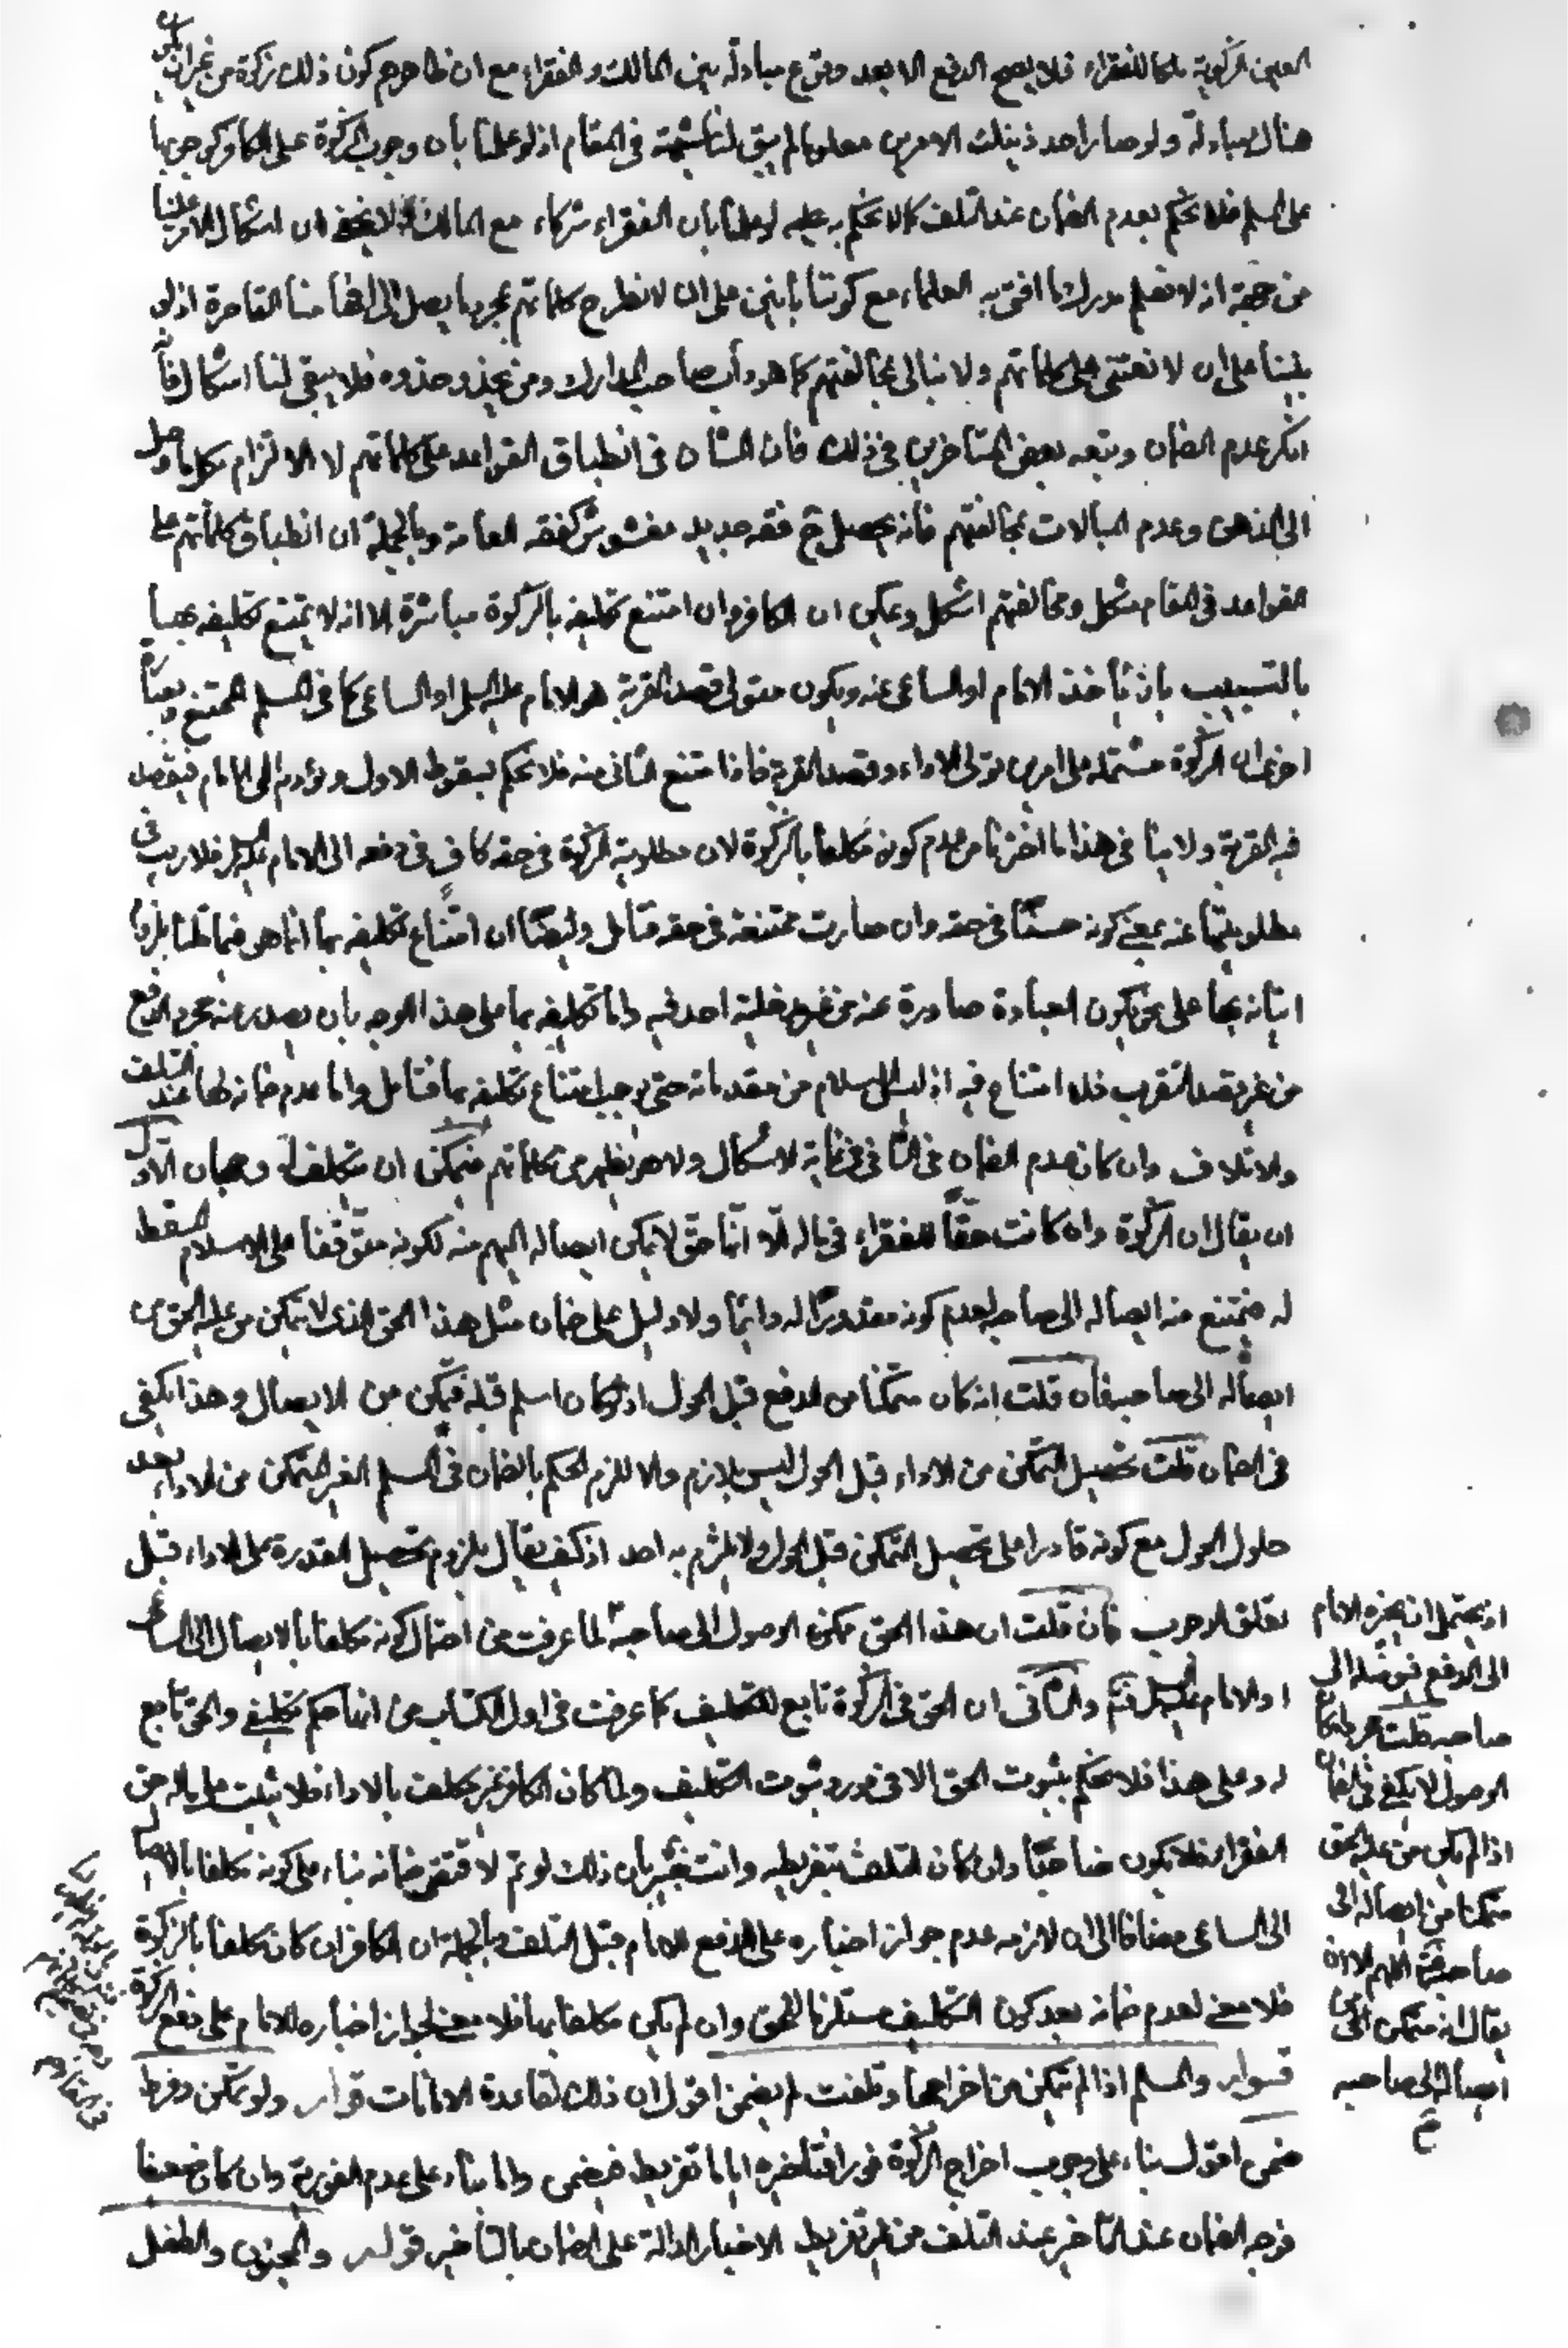 العين الزكوية ملكا للفقراء فلا يصح الدفع الا بعد وقوع مبادلة بين المالك و الفقراء مع ان ظاهرهم كون ذلك زكوة من غير ان يكون
هناك مبادلة و لو صار احد ذينك الامرين معلوما لم يبق لنا شبهة فى المقام اذ لو علمنا بأن وجوب الزكوة على الكافر كوجوبها
على المسلم فلا نحكم بعدم الضمان عند التلف كما لا نحكم به عليه لو علمنا بان الفقراء شركاء مع المالك و لا يخفى ان اشكال الامر علينا
من جهة انه لا نعلم مدرك ما افتى به العلماء مع كوننا بانين على ان لا نطرح كلماتهم بمجرد ما يصل الى افهامنا القاصرة اذ لو
بنينا على ان لا نعتنى على كلماتهم و لا نبالى بمخالفتهم كما هو دأب صاحب المدارك و من يحذو حذوه فلا يبقى لنا اشكال فانه
انكر عدم الضمان و تبعه بعض المتاخرين فى ذلك فان الشان فى انطباق القواعد على كلماتهم لا الالتزام بكل ما وصل
الى الذهن و عدم المبالات بمخالفتهم فانه يحصل ح فقه جديد مغشوش كفقه العامة و بالجملة ان انطباق كلماتهم على
القواعد فى المقام مشكل و مخالفتهم اشكل و يمكن ان الكافر و ان امتنع تكليفه بالزكوة مباشرة الا انه لا يمتنع تكليفه بها
بالتسبيب بان يأخذ الامام او الساعى عنه و يكون متولى قصد القربة هو الامام عليه السلام او الساعى كما فى المسلم الممتنع و بعبارة
اخرى ان الزكوة مشتملة على امرين تولى الاداء و قصد القربة فاذا امتنع الثانى منه فلا نحكم بسقوط الاول و يؤديه الى الامام فيقصد
فيه القربة و لا ينافى هذا ما اخترنا من عدم كونه مكلفا بالزكوة لان مطلوبية الزكوة فى حقه كاف فى دفعه الى الامام عليه السلام فلا ريب فى
مطلوبيتها عنه بمعنى كونه حسنا فى حقه و ان صارت ممتنعة فى حقه فتامل و ايضا ان امتناع تكليفه بها انما هو فيما قلنا بلزوم
اتيانه بها على نحو يكون العبادة صادرة عنه من غير مدخلية احد فيه و اما تكليفه بها على هذا الوجه بان يصدر عنه مجرد الدفع
من غير قصد التقرب فلا امتناع فيه اذ ليس الاسلام من مقدماته حتى يوجب امتناع تكليفه بها فتامل و اما عدم ضمانه لها عند التلف
و الاتلاف و ان كان عدم الضمان فى الثانى فى غاية الاشكال و لا هو يظهر من كلماتهم فيمكن ان يتكلف له وجهان الاول
ان يقال ان الزكوة و ان كانت حقا للفقراء فى ماله الا انها حق لا يمكن ايصاله اليهم منه لكونه متوقفا على الاسلام المسقط
له فيمتنع منه ايصاله الى صاحبه لعدم كونه مقدورا له دائما و لا دليل على ضمان مثل هذا الحق الذى لا يتمكن من عليه الحق من
ايصاله الى صاحبه فان قلت انه كان متمكنا من الدفع قبل الحول اذ لو كان اسلم قبله فيتمكن من الايصال و هذا يكفى
فى الضمان قلت تحصيل التمكن من الاداء قبل الحول ليس بلازم و الا للزم الحكم بالضمان فى المسلم الغير المتمكن من الاداء بعد
حلول الحول مع كونه قادرا على تحصيل التمكن قبل الحول و لا يلتزم به احد اذ كيف يقال بلزوم تحصيل القدرة على الاداء قبل
تعلق الوجوب فان قلت ان هذا الحق ممكن الوصول الى صاحبه لما عرفت من احتمال كونه مكلفا بالايصال الى الساعى
او الامام عليه السلام و الثانى ان الحق فى الزكوة تابع للتكليف كما عرفت فى اول الكتاب من انها حكم تكليفى و الحق تابع
له و على هذا فلا نحكم بثبوت الحق الا فى مورد ثبوت التكليف و لما كان الكافر غير مكلف بالاداء فلا يثبت على ماله حق
الفقراء فلا يكون ضامنا و ان كان التلف بتفريطه و انت خبير بان ذلك لو تم لاقتضى ضمانه بناء على كونه مكلفا بالايصال
الى الساعى مضافا الى ان لازمه عدم جواز اجباره على الدفع للامام قبل التلف و بالجملة ان الكافر ان كان مكلفا بالزكوة
فلا معنى لعدم ضمانه بعد كون التكليف مستلزما للحق و ان لم يكن مكلفا بها فلا معنى لجواز اجباره للامام على دفع الزكوة
قوله و المسلم اذا لم يتمكن من اخراجها و تلفت لم يضمن اقول ان ذلك لقاعدة الامانات قوله و لو تمكن و فرط
ضمن اقول بناء على وجوب اخراج الزكوة فورا فتاخيره اياها تفريط فيضمن و اما بناء على عدم الفورية و ان كان ضعيفا
فوجه الضمان عند التاخير عند التلف من غير تفريط الاخبار الدالة على الضمان بالتاخير قوله و المجنون و الطفل
اذ يحتمل ان يجبره الامام
الى الدفع فيوصله الى
صاحبه قلت مجرد امكان
الوصول لا يكفى فى الضمان
اذا لم يكن من عليه الحق
متمكنا من ايصاله الى
صاحبه اللهم الا ان
يقال انه متمكن من
ايصاله الى صاحبه